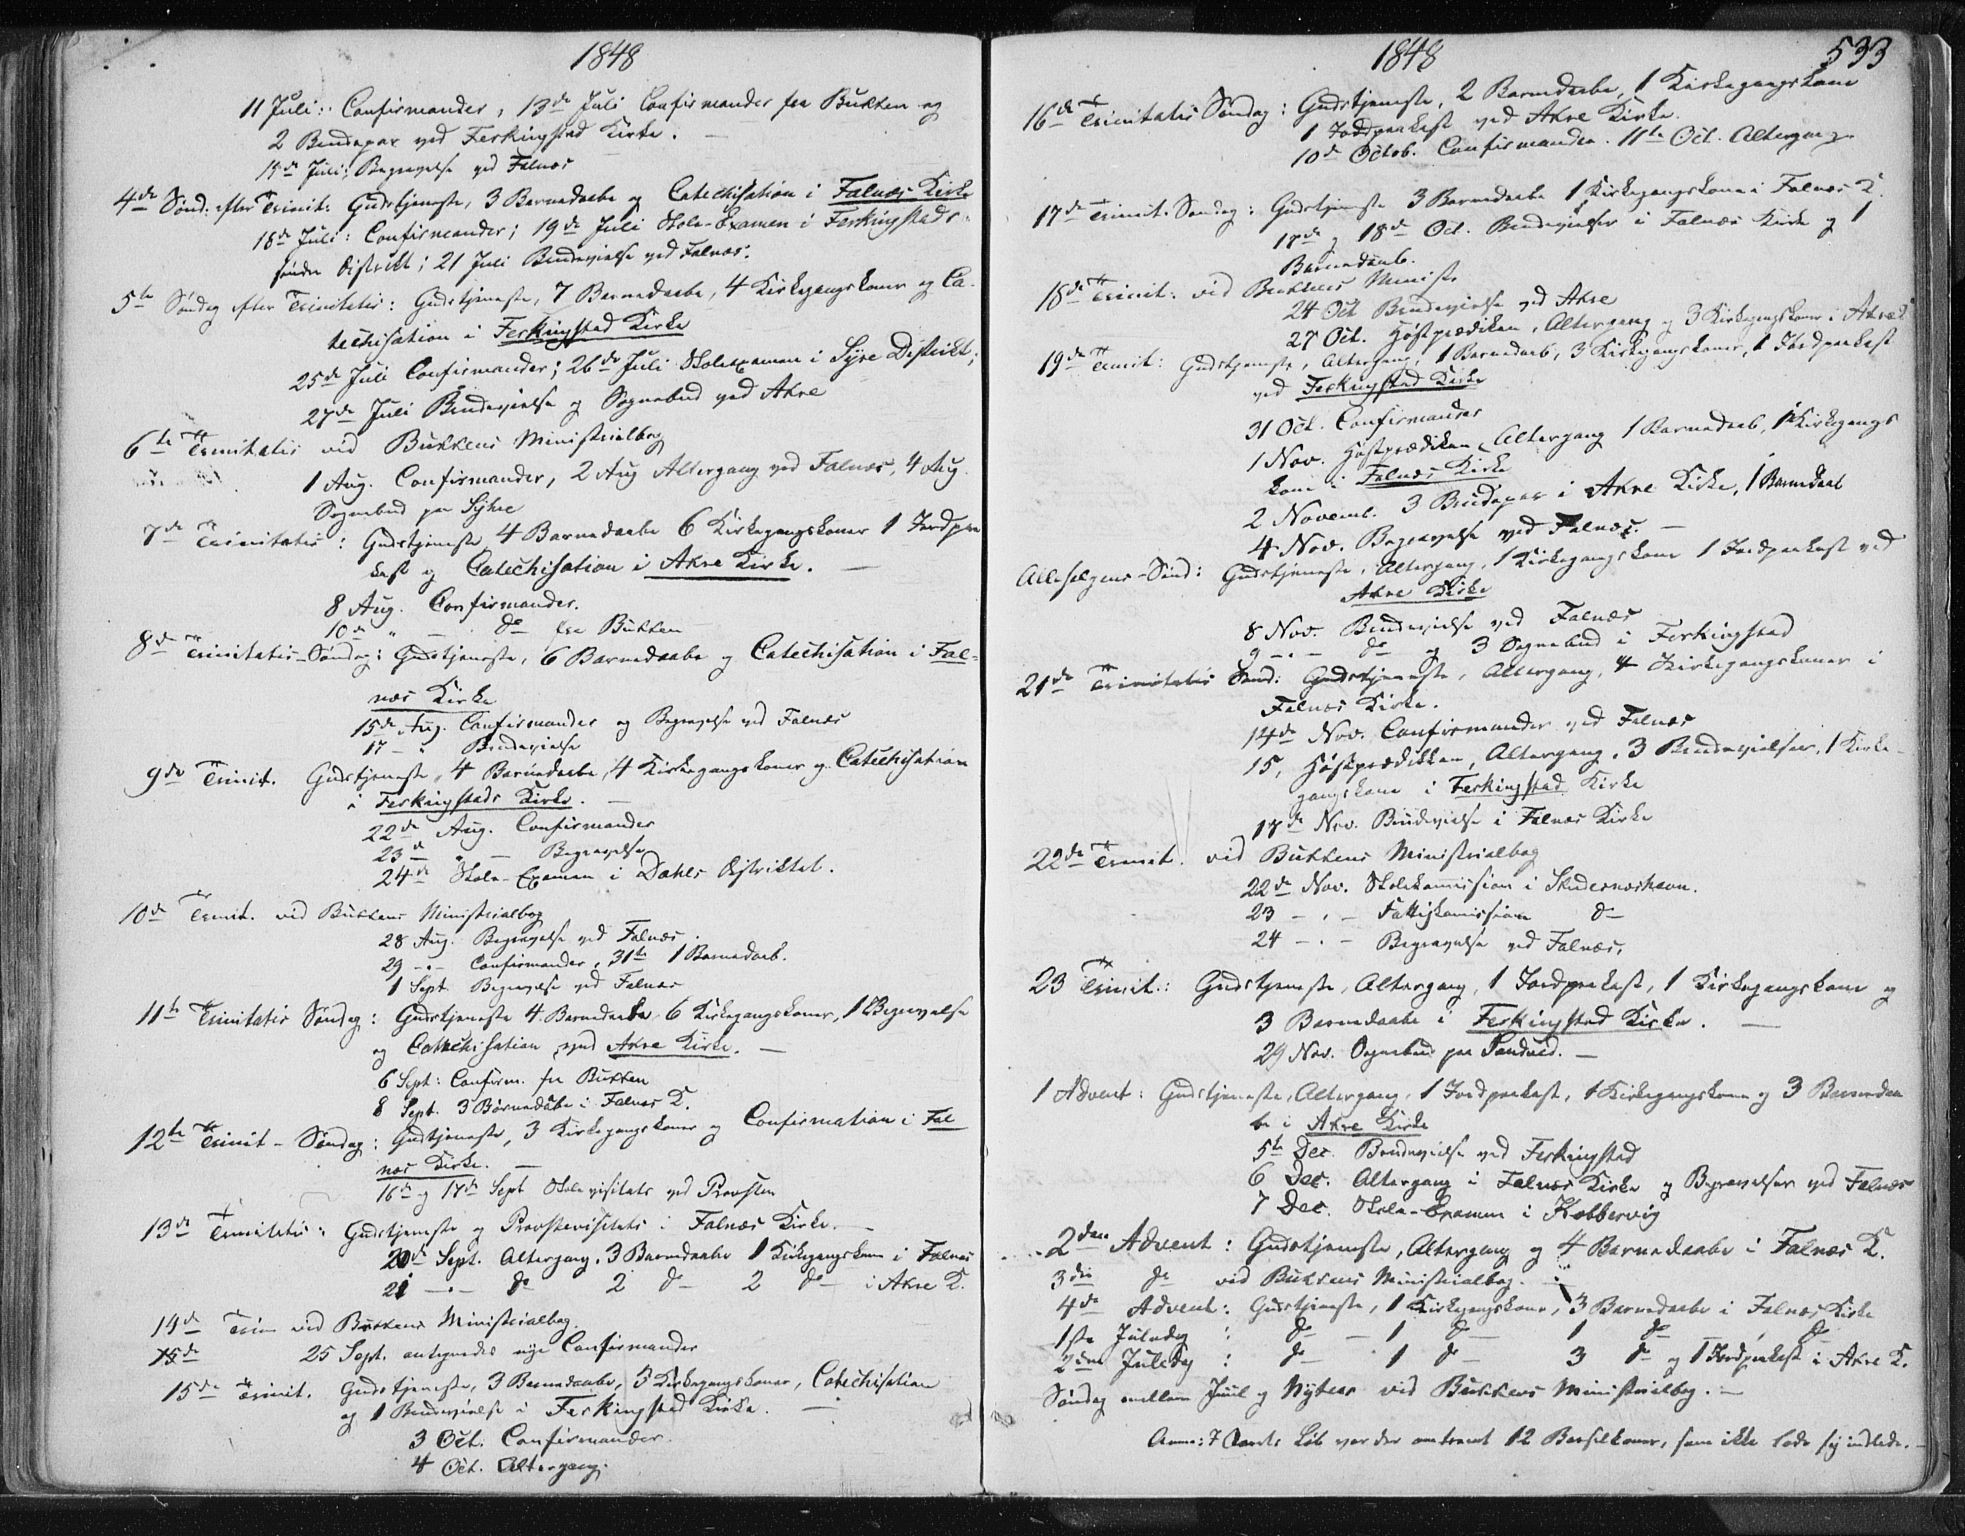 1848
11 Juli: Confirmander, 13de Juli Confirmander fra Bukken og
2 Brudepar ved Ferkingstad Kirke. —
15de Juli: Begravelse ved Falnæs
4de Sønd: efter Trinit: Gudstjeneste, 3 Barnedaabe og Catechisation i Falnæs Kirke
18de Juli: Confirmander; 19de Juli Skole-Examen i Ferkingstads
søndre District; 21 Juli Brudevielse ved Falnæs.
5te Søndag efter Trinitatis: Gudstjeneste, 7 Barnedaabe, 4 Kirkegangskoner og Ca-
techisation i Ferkingstad Kirke
25de Juli Confirmander; 26de Juli Skoleexamen i Syre Distrikt;
27de Juli Brudevielse og Sognebud ved Akre
6te Trinitatis vid Bukkens Ministrialbog
1 Aug. Confirmander, 2 Aug Altergang ved Falnæs, 4 Aug.
Sognebud paa Syhre
7de Trinitatis: Gudstjeneste 4 Barnedaabe 6 Kirkegangskoner 1 Jordpaa
kast og Catechisation i Akre Kirke. —
8 Aug. Confirmander.
10de " — do fra Bukken
8de Trinitatis-Søndag: Gudstjeneste, 6 Barnedaabe og Catechisation i Fal-
næs Kirke
15de Aug. Confirmander og Begravelse ved Falnæs
17 — " Brudevielse
9de Trinit. Gudstjeneste, 4 Barnedaabe, 4 Kirkegangskoner og Catechisation
i Ferkingstads Kirke. —
22de Aug. Confirmander
23de " — Begravelse
24de Skole-Examen i Dahls Distriktet.
10de Trinit. vid Bukkens Ministrialbog
28 Aug. Begravelse ved Falnæs.
29 - " - Confirmander, 31te 1 Barnedaab.
1 Sept. Begravelse ved Falnæs
11te Trinitatis Søndag: Gudstjeneste 4 Barnedaabe 6 Kirkegangskoner, 1 Begravelse
og Catechisation ved Akre Kirke. —
6 Sept: Confirm. fra Bukken
8 Sept. 3 Børnedåbe i Falnæs K.
12te Trinit-Søndag: Gudtjeneste, 3 Kirkegangskoner og Confirmation i Fal
næs Kirke. —
16de og 17de Sept Skolevisitats ved Provsten
13de Trinitatis: Gudstjeneste og Provstevisitats i Falnæs Kirke. —
20de Sept. Altergang, 3 Barnedaabe 1 Kirkegangskone i Falnæs
21 - " - do 2 do 2 do i Akre K.
14de Trin vid Bukkens Ministrialbog.
15de 25 Sept. antegnedes nye Confirmander
15de Trinit. Gudstjeneste, 3 Barnedaabe, 3 Kirkegangskoner, Catechisation
og 1 Brudevielse i Ferkingstad Kirke. —
3 Oct. Confirmander.
4 Oct. Altergang.
1848 533
16de Trinitatis Søndag: Gudstjeneste, 2 Barnedaabe, 1 Kirkegangskone
1 Jordpaakast ved Akre Kirke.
10de Octob. Confirmander. 11te Oct. Altergang
17de Trinit. Søndag: Gudstjeneste 3 Barnedaabe 1 Kirkegangskone i Falnæs K.
17de og 18de Oct. Brudevielser i Falnæs Kirke og 1
Barnedaab.
18de Trinit: vid Bukkens Minist.
24 Oct Brudevielse ved Akre
27 Oct. Høstprædiken, Altergang og 3 Kirkegangskoner i Akre K.
19de Trinit: Gudstjeneste, Altergang, 1 Barnedaab, 3 Kirkegangskoner, 1 Jordpaakast
ved Ferkingstad Kirke
31 Oct. Confirmander
1 Nov. Høstprædiken, Altergang 1 Barnedaab, 1 Kirkegangs
kone i Falnæs Kirke
2 Novemb. 3 Brudepar i Akre Kirke, 1 Barnedaab
4 Nov. Begravelse ved Falnæs. —
Allehelgens-Sønd: Gudstjeneste, Altergang, 1 Kirkegangskone 1 Jordpaakast ved
Akre Kirke
8 Nov. Brudevielse ved Falnæs
9 - " - do og 3 Sognebud i Ferkingstad
21de Trinitatis Sønd: Gudstjeneste, Altergang, 4 Kirkegangskoner i
Falnæs Kirke.
14de Nov. Confirmander ved Falnæs
15, Høstprædikken, Altergang, 3 Brudevielser, 1 Kirke-
gangskone i Ferkingstad Kirke
17de Nov. Brudevielse i Falnæs Kirke
22de Trinit. vid Bukkens Ministrialbog
22de Nov. Skolekomission i Skudesnæshavn.
23 - " - Fattigkomission do
24 - " - Begravelse ved Falnæs,
23 Trinit.: Gudstjeneste, Altergang, 1 Jordpaakast, 1 Kirkegangskone og
3 Barnedaabe i Ferkingstad Kirke. —
29 Nov. Sognebud paa Sandved. —
1 Advent: Gudstjeneste, Altergang, 1 Jordpaakast, 1 Kirkegangskone og 3 Barnedaa
be i Akre Kirke
5te Dec. Brudevielse ved Ferkingstad
6 Dec. Altergang i Falnæs Kirke og Begravelser ved Falnæs
7 Dec. Skole-Examen i Kobbervig
2den Advent: Gudstjeneste, Altergang og 4 Barnedaabe i Falnæs K.
3die do vid Bukkens Ministrialbog. —
4de Advent: Gudstjeneste, 1 Kirkegangskone, 3 Barnedaabe i Falnæs Kirke
1ste Juledag: do — 1 do — 1 do do
2den Juledag: do — 1 do — 3 do og 1 Jordpaakast i Akre K.
Søndag mellem Juul og Nytaar vid Bukkens Ministrialbog. —
Anm: I Aarets Løb var der omtrent 12 Barselkoner, som ikke lode sig indlede. —